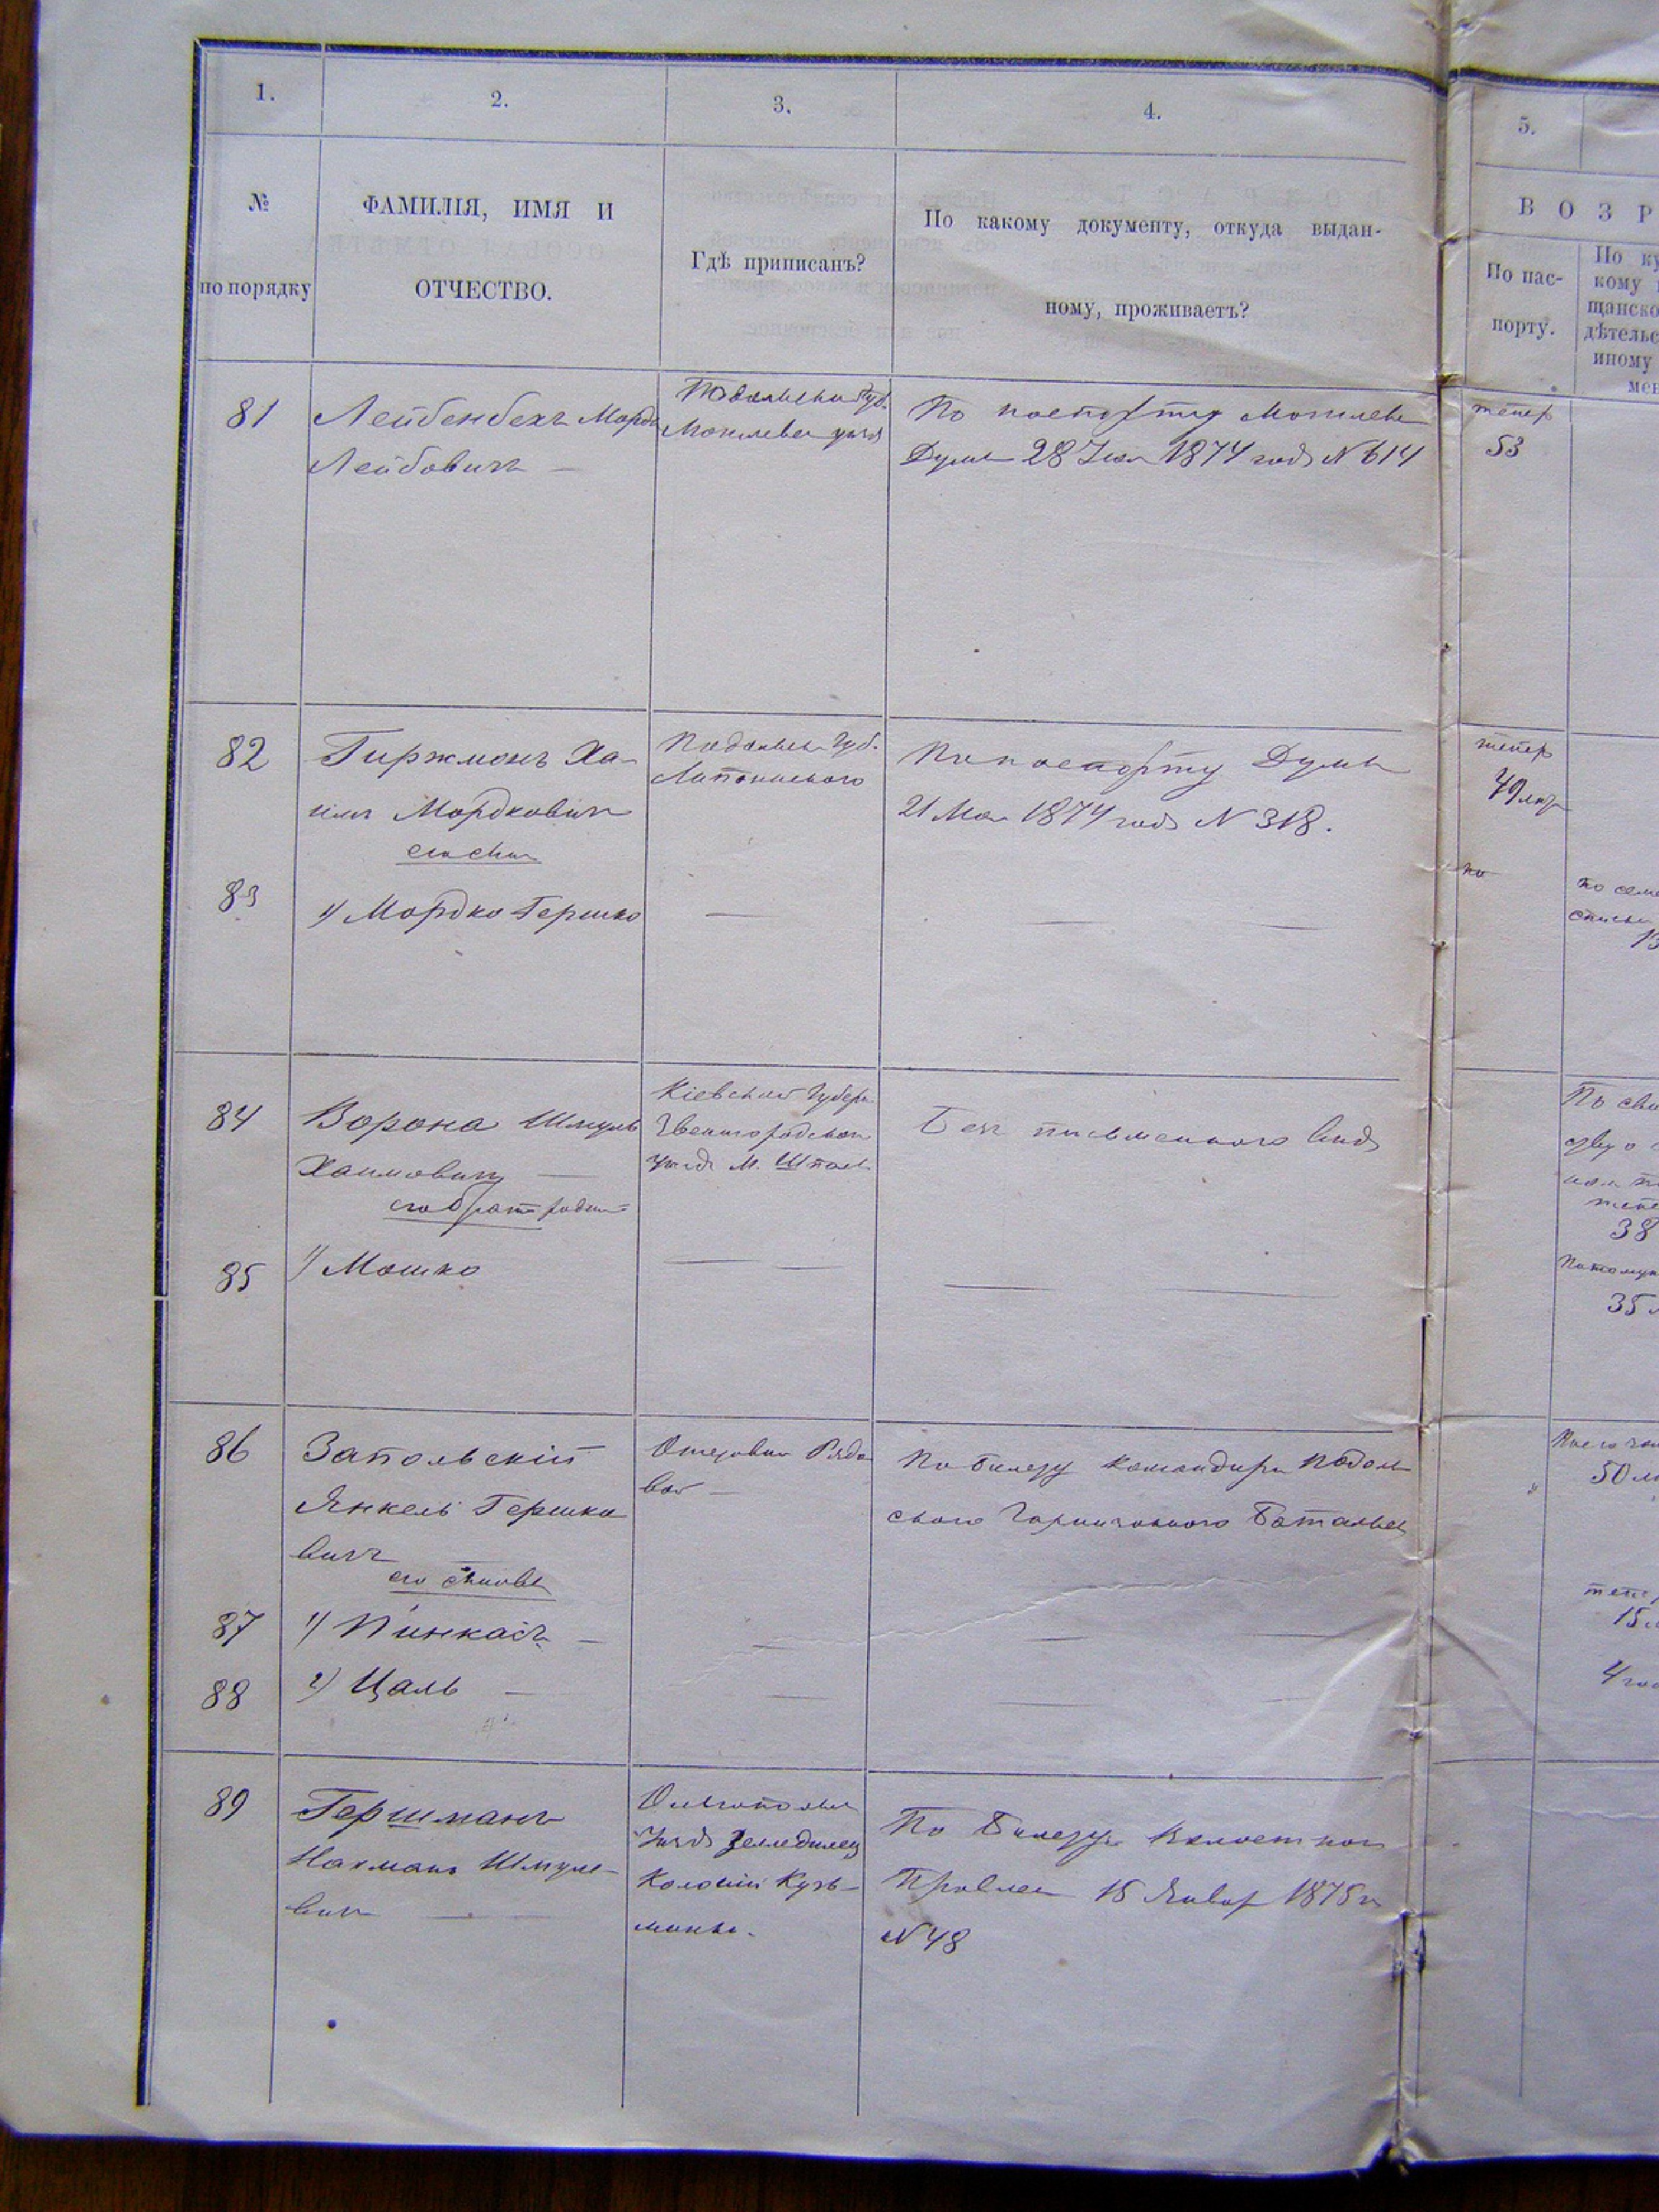 1.
2.
3.
4.
5.
№
по порядку
ФАМИЛІЯ, ИМЯ И
ОТЧЕСТВО.
Гдѣ приписанъ?
По какому документу, откуда выдан-
ному, проживаетъ?
ВОЗР
По пас-
порту.
По ку
кому
щанско
дѣтельс
иному
мен
81
Лейбенбехъ Мордк
Лейбовичъ —
Губ.
По паспорту Могилев
Думы 28 1874 года N 614
тепер
53
82
Гиржманъ Ха-
имъ Мордковичъ
его сынъ
Подольск Губ.
По паспорту Думы
21 Мая 1874 года N 318.
тепер
49 лет
83
1) Мордко Гершко
—
— —
по
по семе
списку
13
84
Ворона Шмуль
Хаимовичъ —
его брат родн=
Кіевской Губерн
Звенигородскаго
уезда М. Шпола
Без письменного вида
По сви
38
85
1) Мошко
— —
— —
35
86
Запольскій
Янкель Гершко
вичъ —
его сыновья
Рядо
вой —
По билету Командира Подоль
скаго Гарнизоннаго Баталіона
50 ле
87
1) Пинкасъ —
—
— —
тепер
15
88
2) Цаль —
—
— —
4 год
89
Гершманъ
Нахманъ Шмуле-
вичъ — —
Ольгополь
уезда
Колоніи Кузь-
мина.
По Билету Волостнаго
Правлен 15 Январ 1875 г
N 48